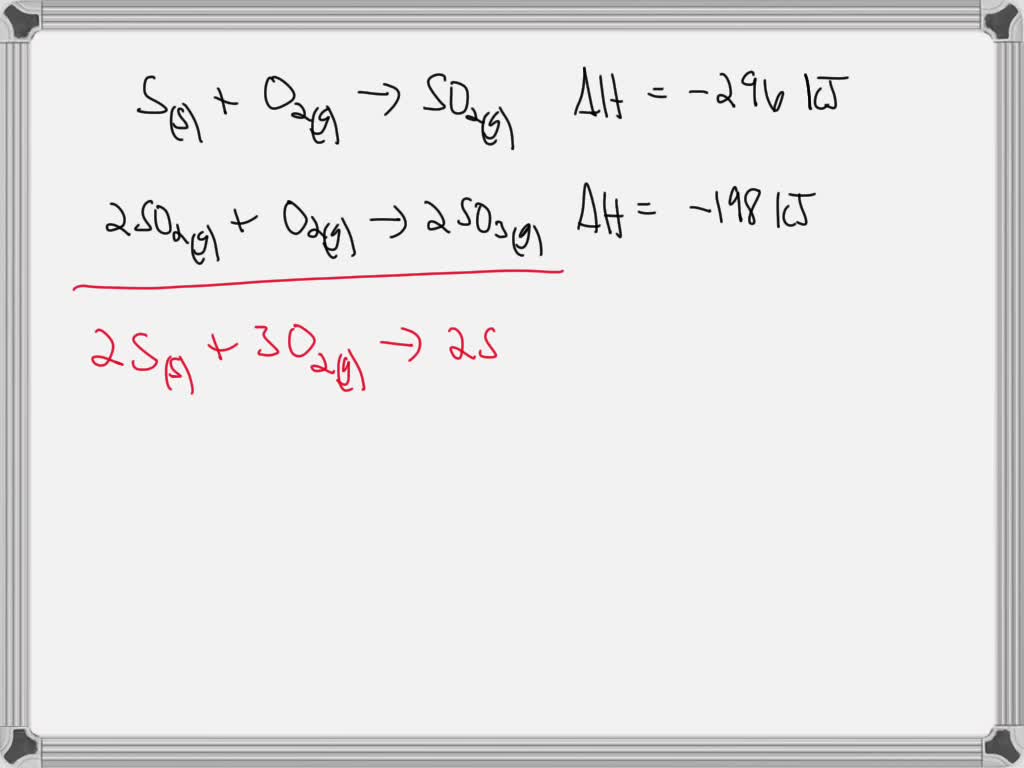 S(s) + O2(g) → SO2(g) ΔH = -296 kJ
2SO2(g) + O2(g) → 2SO3(g) ΔH = -198 kJ
2S(s) + 3O2(g) → 2S